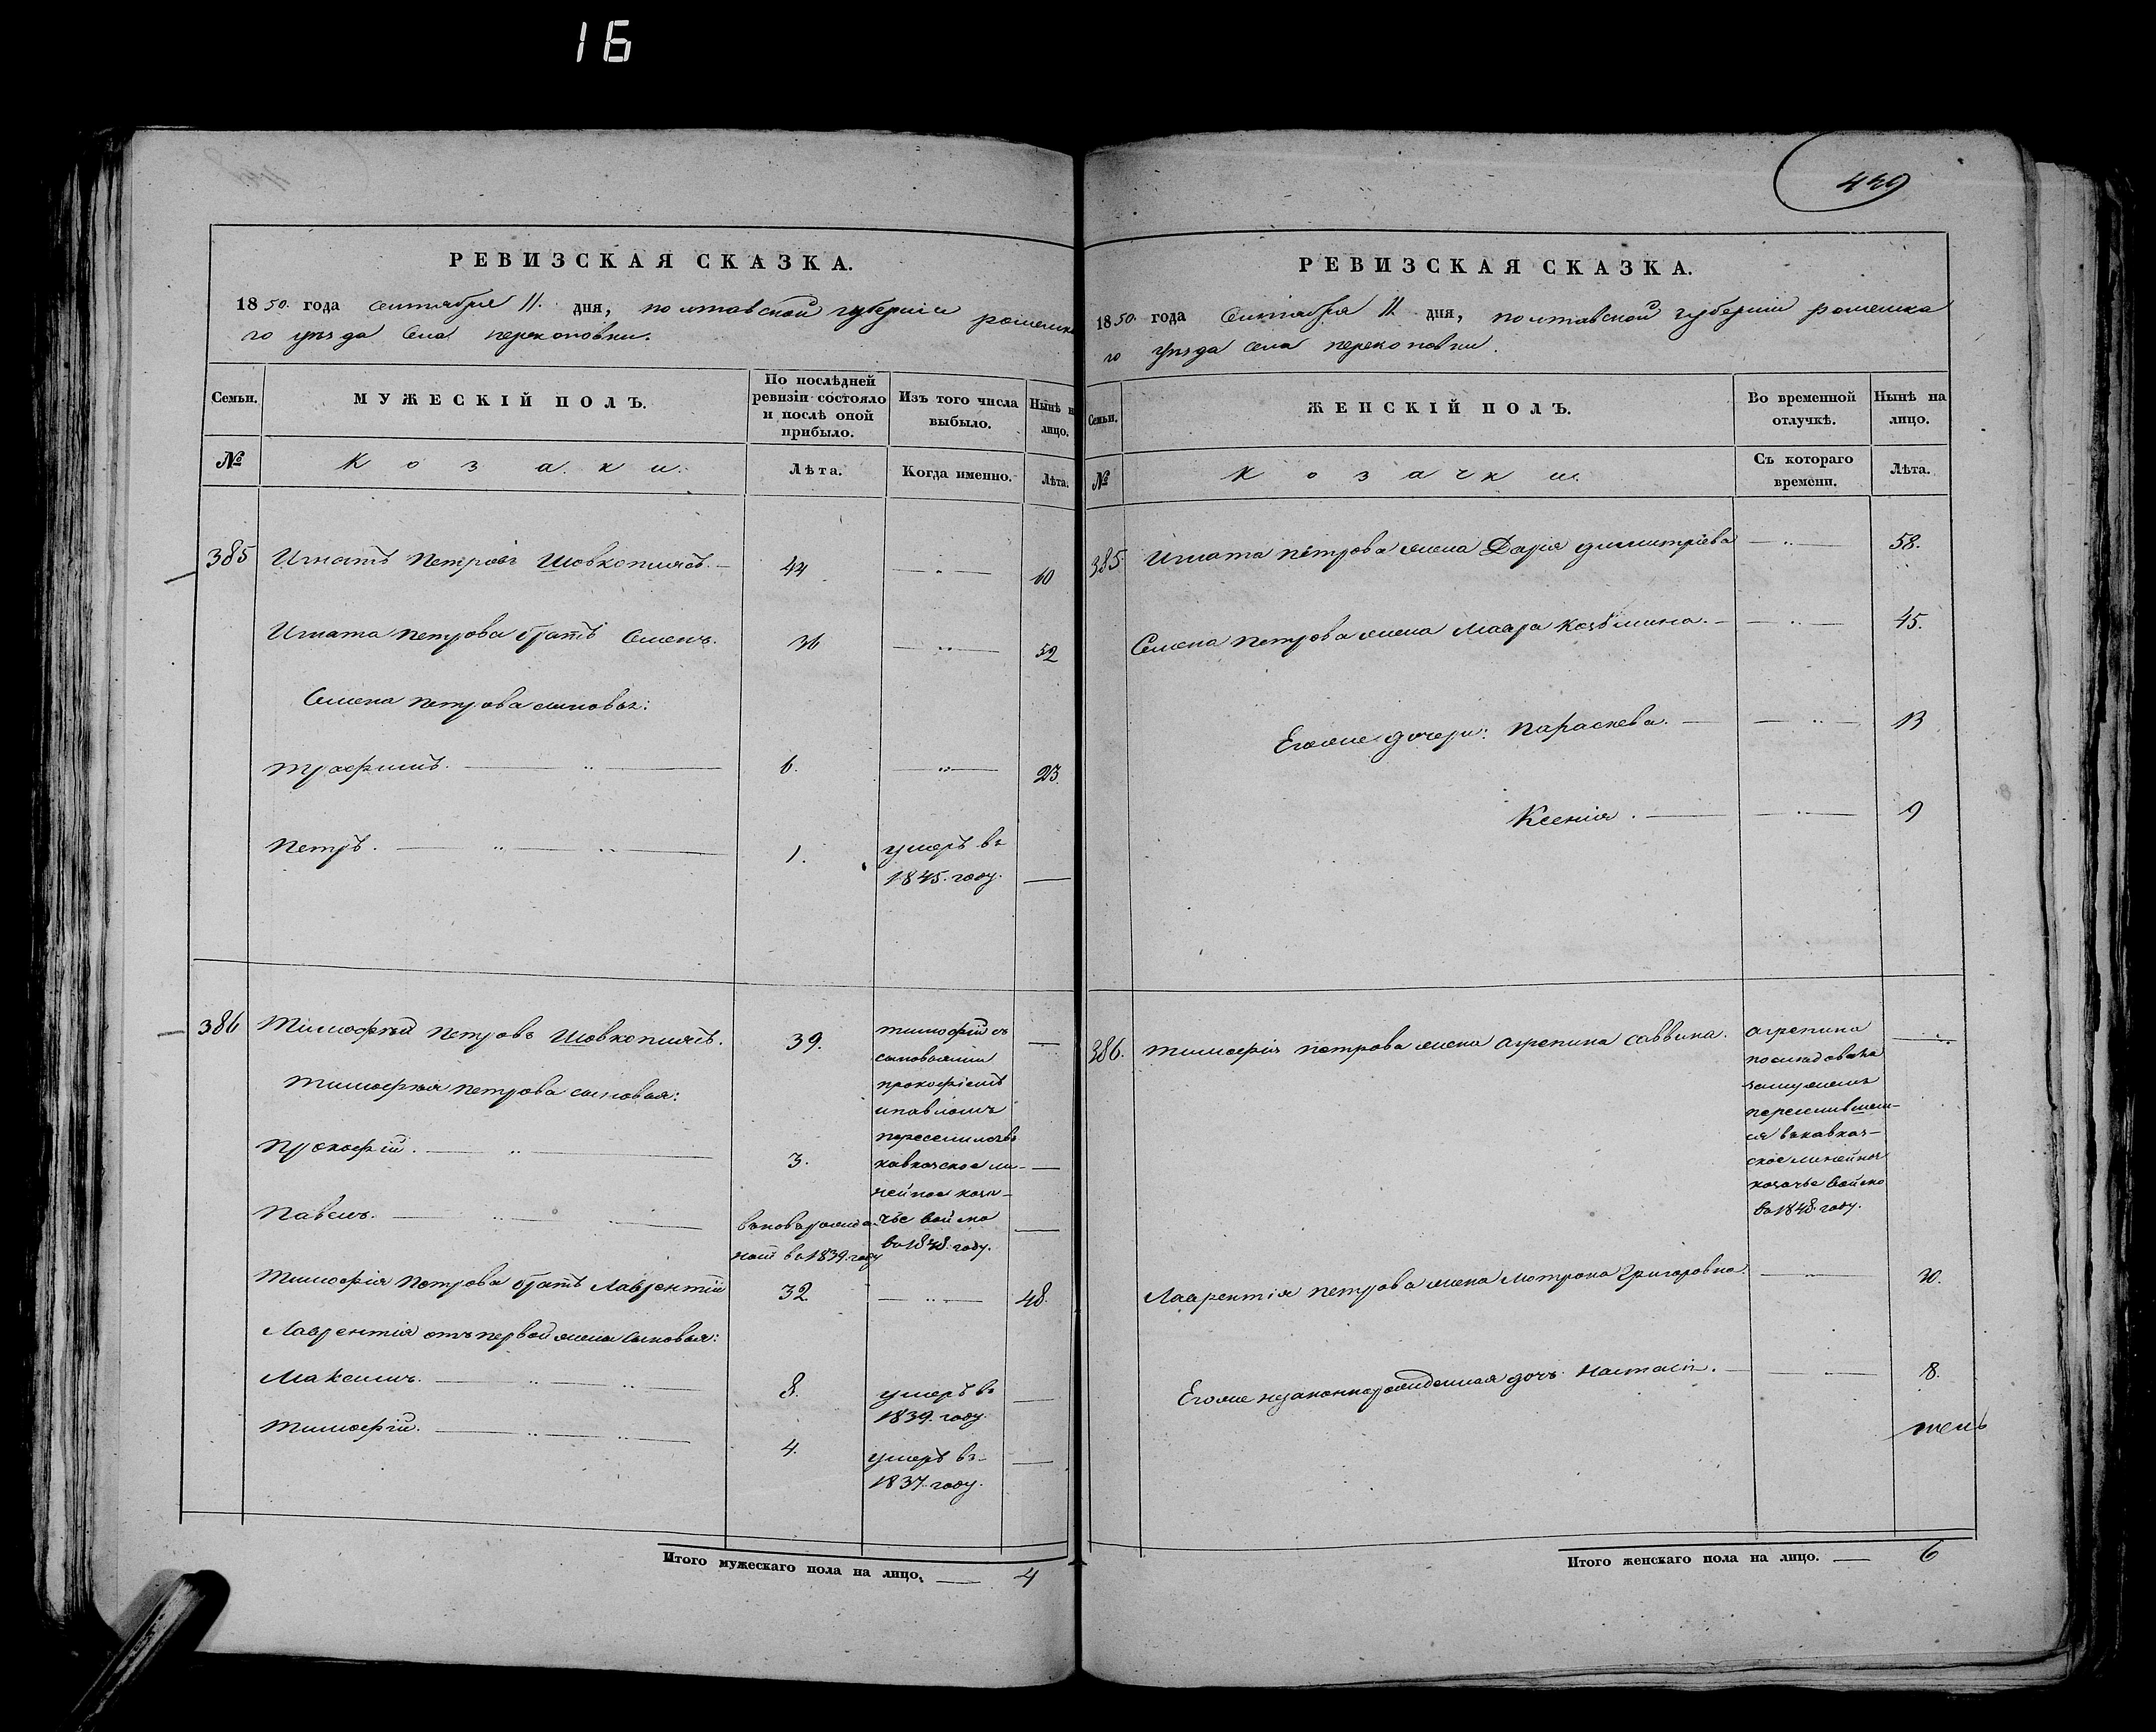 16
РЕВИЗСКАЯ СКАЗКА.
1850. года Сентября 11. дня, полтавской губерніи роменска
го уѣзда Села перекоповки.
Семьи.
МУЖЕСКІЙ ПОЛЪ.
По послѣдней ревизіи состояло и послѣ оной прибыло.
Изъ того числа выбыло.
Нынѣ на лицо.
№
Козаки.
Лѣта.
Когда именно.
Лѣта.
385 Игнатъ Петровъ Шовкоплясъ. 44 60
Игната Петрова братъ Семенъ. 36 52
Семена Петрова сыновья:
Трофимъ. 6. 23.
Петръ. 1. умеръ въ
1845. году.
386 Тимофѣй Петровъ Шовкоплясъ. 39. тимофій съ
сыновьями
Тимофѣя Петрова сыновья:
прокофіемъ
и павломъ
Прокофій. 3. переселилсявъ
кавказское ли-
нейное каза-
Павелъ. вновьрожде- чье войско
ной въ 1839. году въ 1848. году.
Тимофія Петрова братъ Лаврентій 32 48.
Лаврентія отъ первой жены сыновья:
Максимъ. 8. умеръ въ
1839. году.
Тимофій. 4. умеръ въ
1837. году.
Итого мужескаго пола на лицо. 4
РЕВИЗСКАЯ СКАЗКА.
1850. года Сентября 11. дня, полтавской губерніи роменска
го уѣзда села перекоповки.
Семьи.
ЖЕНСКІЙ ПОЛЪ.
Во временной отлучкѣ.
Нынѣ на лицо.
№
Козачки.
Съ котораго времени.
Лѣта.
385. Игната петрова жена Дарія димитріева 58.
Семена петрова жена Мавра Козьмина. 45.
Егоже дочери: Параскева. 13
Ксенія. 9
386. Тимофія петрова жена Агрепина саввина. агрепина
последовала
замужемъ
переселившем-
ся въкавказ-
ское линейное
козачье войско
въ 1848. году.
Лаврентія петрова жена Мотрона Григоровна.
Егоже незаконнорожденная дочь Настасія. 18.
Итого женскаго пола на лицо. 6